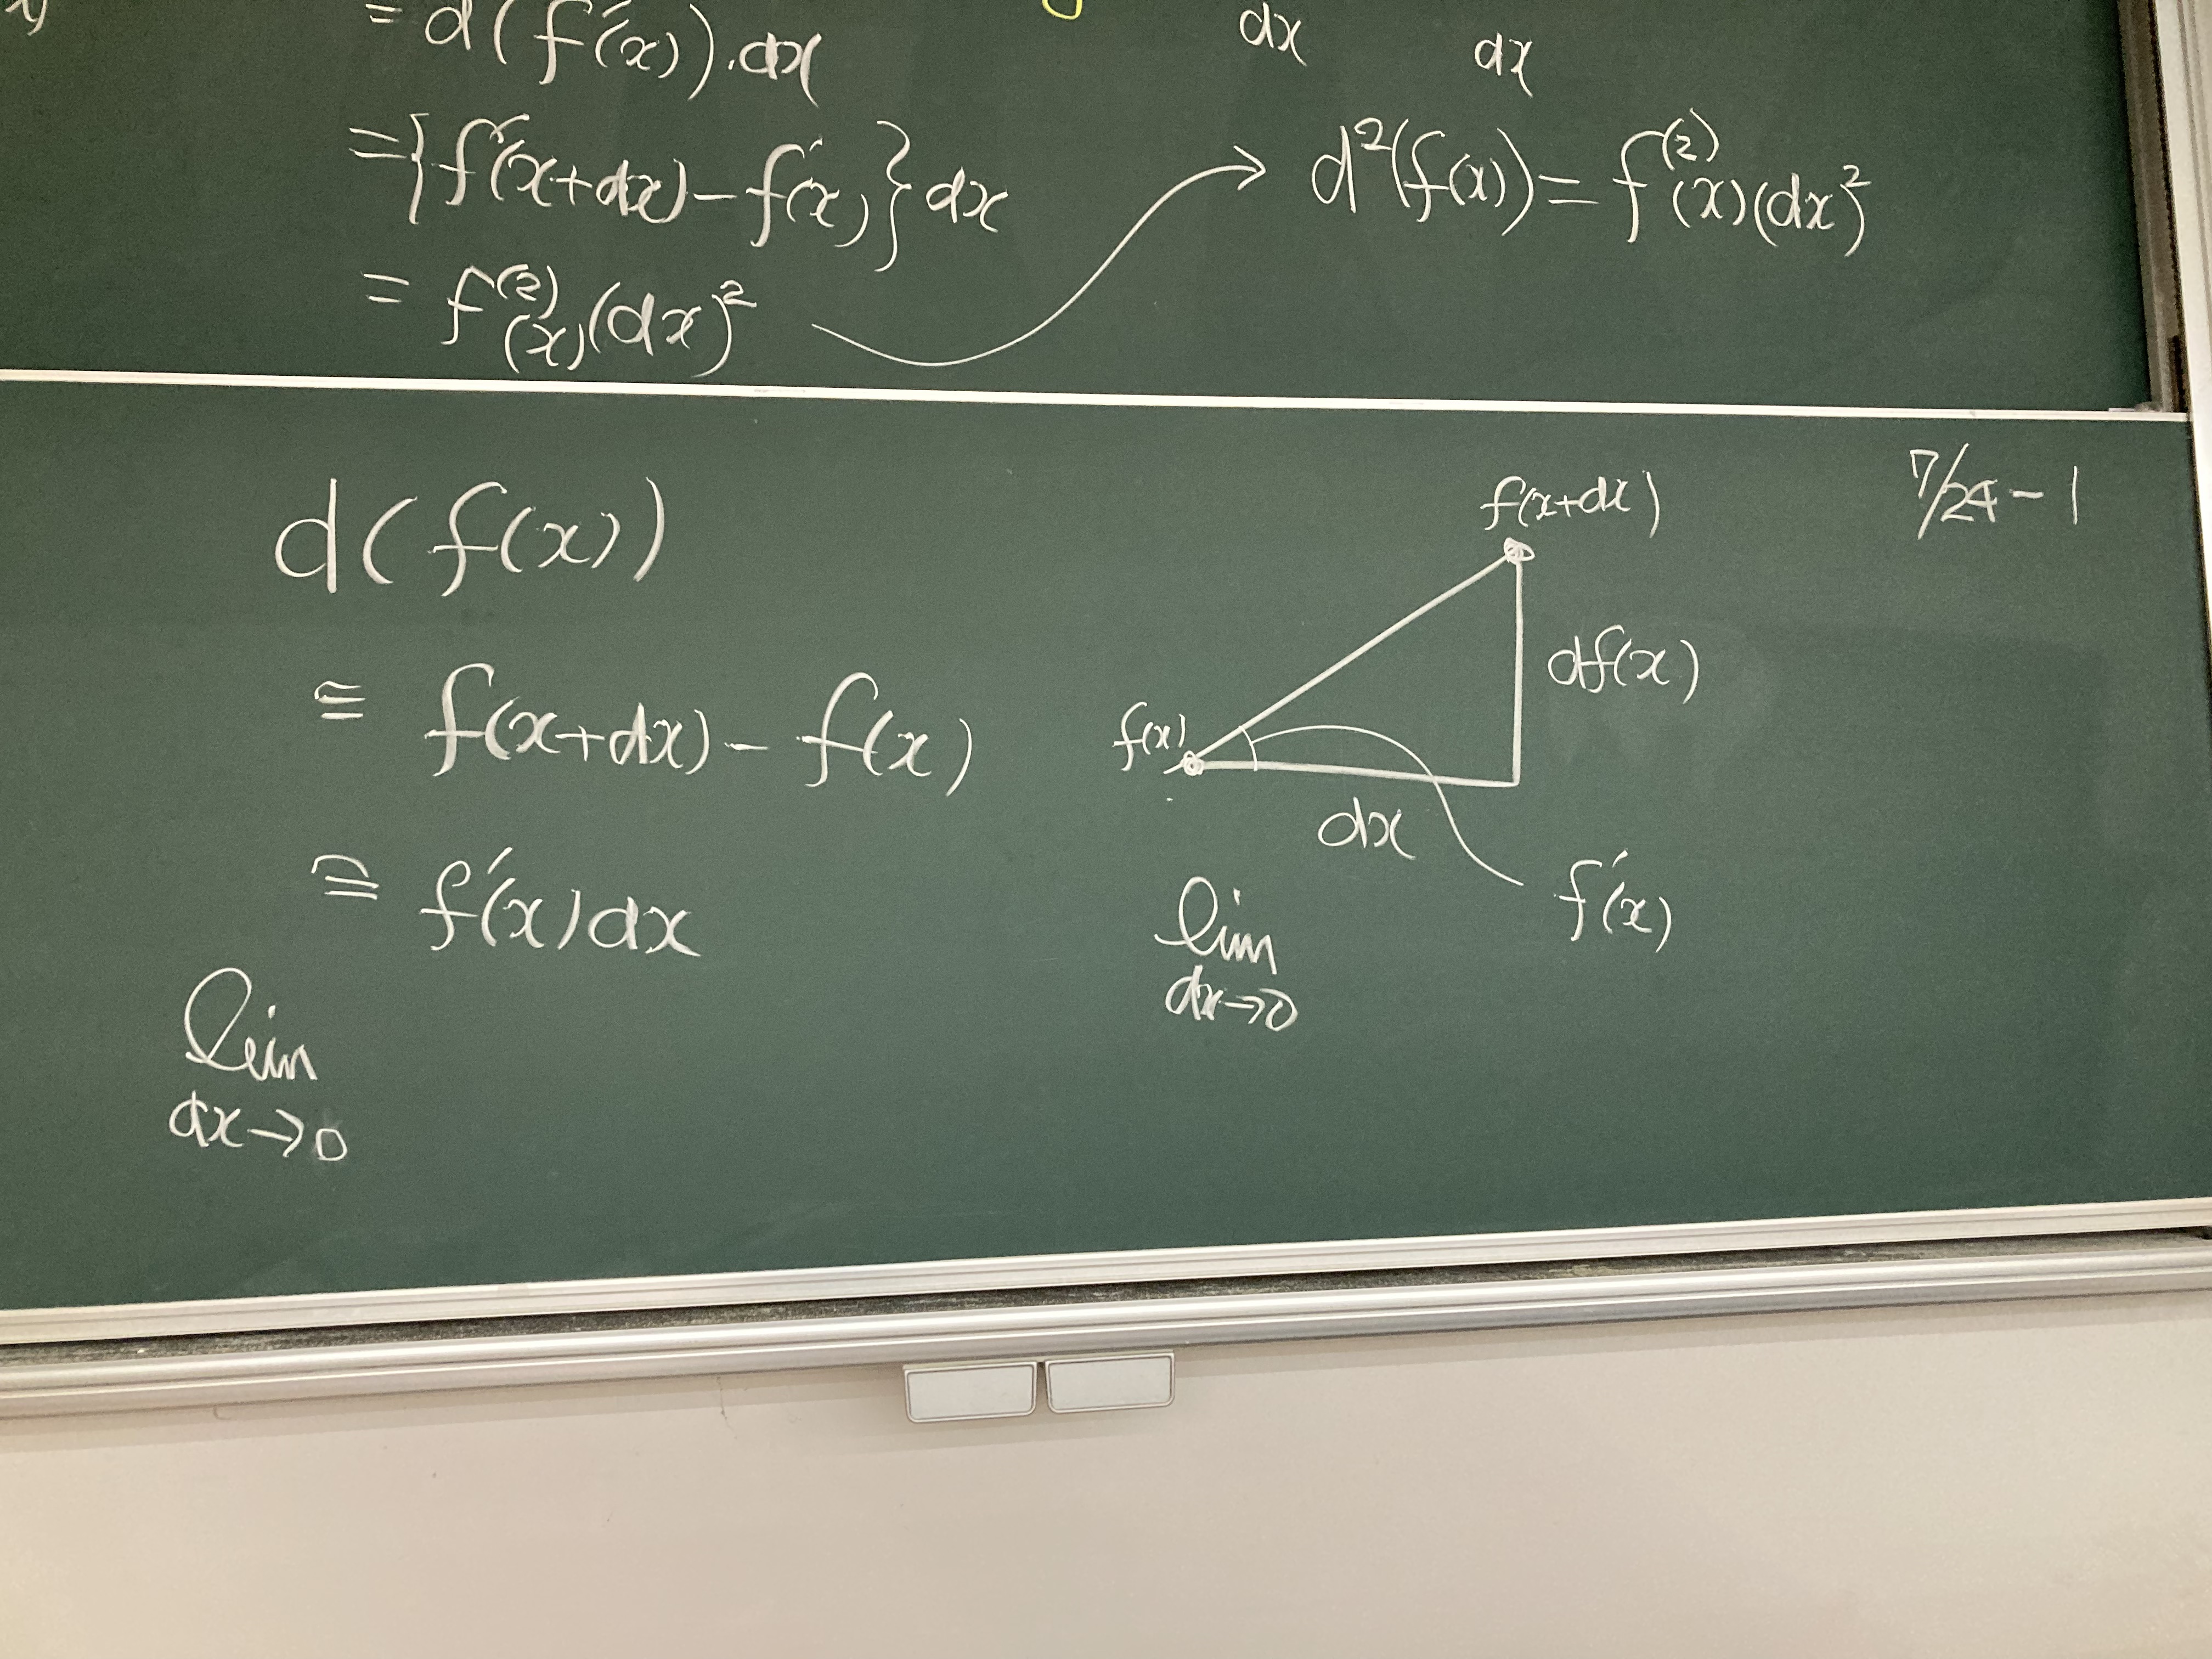 = d(f′(x)).dx
={f′(x+dx)-f′(x)}dx
= f⁽²⁾(x)(dx)²
dx dx
d²(f(x))= f⁽²⁾(x)(dx)²
7/24-1
d(f(x))
≅ f(x+dx)- f(x)
≅ f′(x)dx
lim
dx→0
f(x+dx)
df(x)
f(x)
dx
f′(x)
lim
dx→0